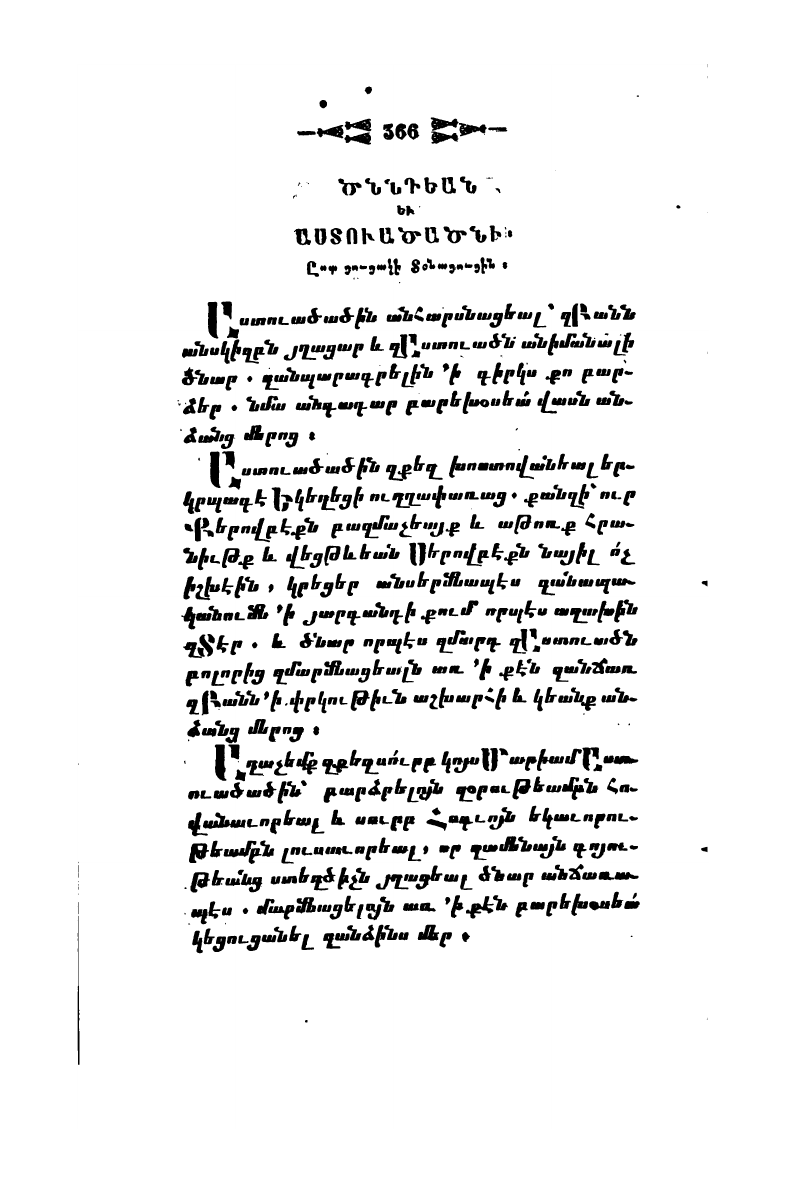 366
ԾՆՆԴԵԱՆ
ԵՒ
ԱՍՏՈՒԱԾԱԾՆԻ։
Ըստ ցուցակի Տօնացուցին ։
Աստուածածին անհարսնացեալ՝ զԲանն
անսկիզբն յղացար և զԱստուածն անիմանալի
ծնար . զանպարագրելին ՚ի գիրկս քո բար-
ձեր . նմա անդադար բարեխօսեա՛ վասն ան-
ձանց մերոց ։
Աստուածածին զքեզ խոստովանեալ եր-
կրպագէ Եկեղեցի ուղղափառաց . քանզի՝ ուր
Քերովբէքն բազմաչեայք և աթոռք հրա-
նիւթք և վեցթևեան Սերովբէքն նայիլ ո՛չ
իշխէին , կրեցեր անսերմնապէս զանապա-
կանութն ՚ի յարգանդի քում որպէս աղախին
զՏէր . և ծնար որպէս զմարդ զԱստուածն
բոլորից զմարմնացեալն առ ՚ի քէն զանճառ
զԲանն ՚ի փրկութիւն աշխարհի և կեանք ան-
ձանց մերոց ։
Աղաչեմք զքեզ սուրբ կոյս Մարիամ Աստ-
ուածածին՝ բարձրելոյն զօրութեամբն հո-
վանաւորեալ և սուրբ Հոգւոյն եկաւորու-
թեամբն լուսաւորեալ , որ զամենայն գոյու-
թեանց ստեղծիչն յղացեալ ծնար անճառա-
պէս . մարմնացելոյն առ ՚ի քէն բարեխօսեա՛
կեցուցանել զանձինս մեր ։